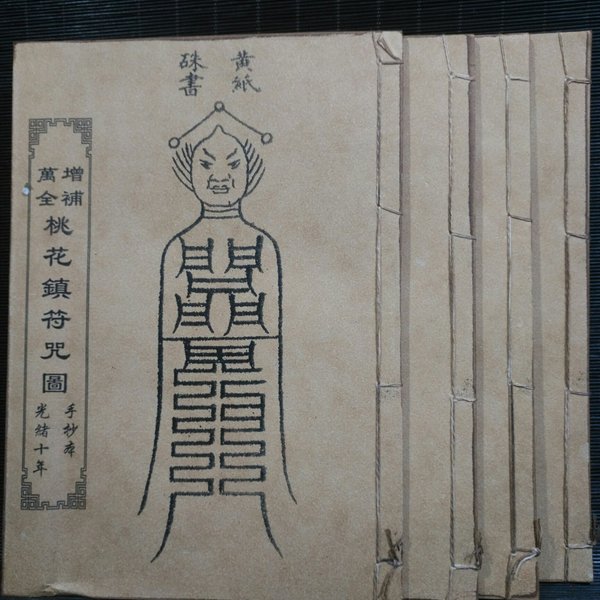 黄紙
硃書
增補
萬全
桃花鎮符咒圖
手抄本
光緒十年